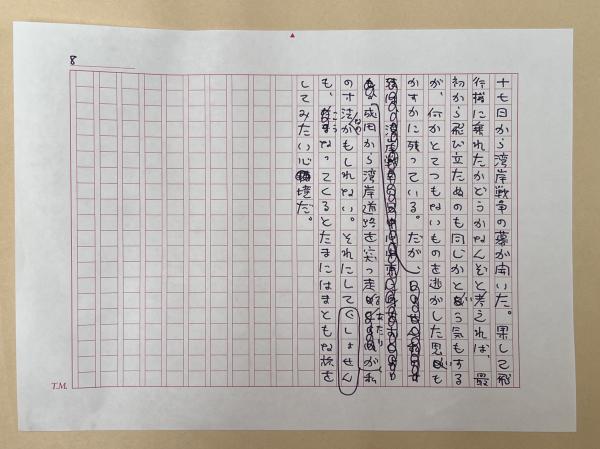 十七日から湾岸戦争の幕が開いた。果して飛
行機に乗れたかどうかなんぞと考えれば、最
初から飛び立ためのも同じかという気もする
が、何かとてつもないものを逃がした思いも
かすかに残っている。だが、
成田から湾岸道路を突っ走るあたりが私
の寸法かもしれない。それにしても
も、こうなってくるとたまにはまともな旅を
してみたい心境だ。
くしょせん
8
T.M.